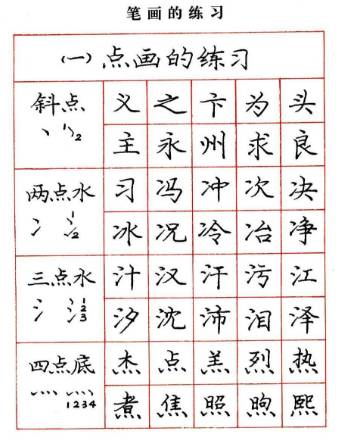 笔画的练习
(一)点画的练习
斜点 义 之 卞 为 头
主 永 州 求 良
两点水 习 冯 冲 次 决
冰 况 冷 冶 净
三点水 汁 汉 汗 污 江
汐 沈 沛 泪 泽
四点底 杰 点 羔 烈 热
1234 煮 焦 照 煦 熙